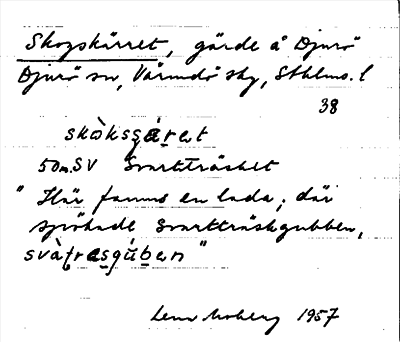 Skogskärret, gärde å Djurö
Djurö sn, Värmdö skg, Sthlms. l
38
skòksgáret
50m. SV Svartträsket
" Här fanns en lada; där
spökade Svartträskgubben,
svàtrasgúben "
1957